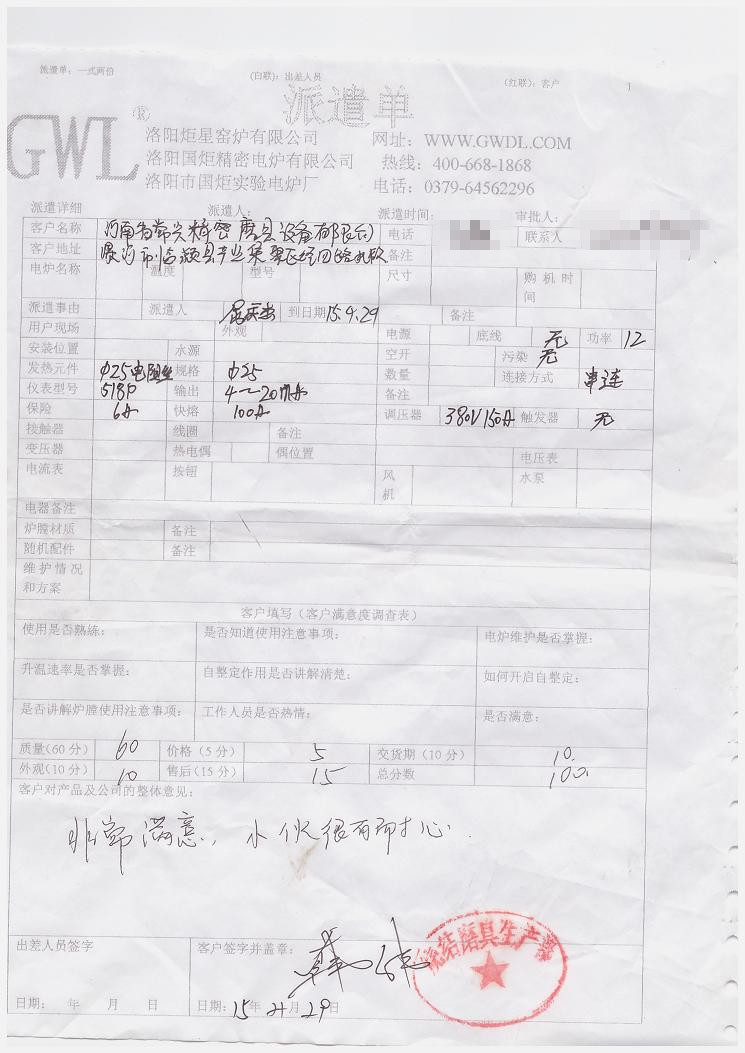 派遣单：一式两份 (白联)：出差人员 (红联)：客户 1
派遣单
GWL®
洛阳炬星窑炉有限公司 网址：WWW.GWDL.COM
洛阳国炬精密电炉有限公司 热线：400-668-1868
洛阳市国炬实验电炉厂 电话：0379-64562296
派遣详细 派遣人： 派遣时间： 审批人：
客户名称 河南省常兴精密磨具设备有限公司 电话 联系人
客户地址 备注
电炉名称 温度 型号 尺寸 购机时间
派遣事由 派遣人 到日期 15.4.29 备注
用户现场 外观 电源 底线 无 功率 12
安装位置 水源 空开 污染 无
发热元件 Φ25电阻丝 规格 Φ25 数量 连接方式 串连
仪表型号 518P 输出 4～20mA 备注
保险 6A 快熔 100A 调压器 380V150A 触发器 无
接触器 线圈 备注
变压器 热电偶 偶位置 电压表
电流表 按钮 风机 水泵
电器备注
炉膛材质 备注
随机配件 备注
维护情况和方案
客户填写（客户满意度调查表）
使用是否熟练： 是否知道使用注意事项： 电炉维护是否掌握：
升温速率是否掌握： 自整定作用是否讲解清楚： 如何开启自整定：
是否讲解炉膛使用注意事项： 工作人员是否热情： 是否满意：
质量(60分) 60 价格（5分） 5 交货期（10分） 10
外观(10分) 10 售后(15分) 15 总分数 100
客户对产品及公司的整体意见：
非常满意，小伙很有耐心
出差人员签字 客户签字并盖章：
结磨具生产
日期： 年 月 日 日期： 15年4月29日